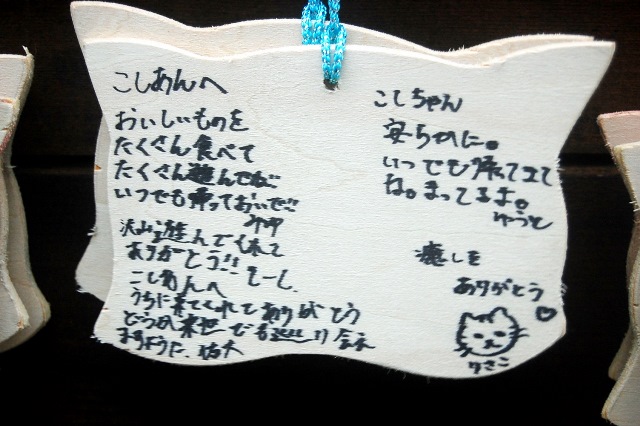 こしあんへ
おいしいものを
たくさん食べて
たくさん遊んでね!!
いつでも帰っておいで!!
沢山遊んでくれて
ありがとう!! もーし
こしあんへ
うちに来てくれてありがとう
どうか来世でも巡り会え
ますように
こしちゃん
安らかに。
いつでも帰ってきて
ね。まってるよ。
ゆうと
癒しを
ありがとう
りさこ